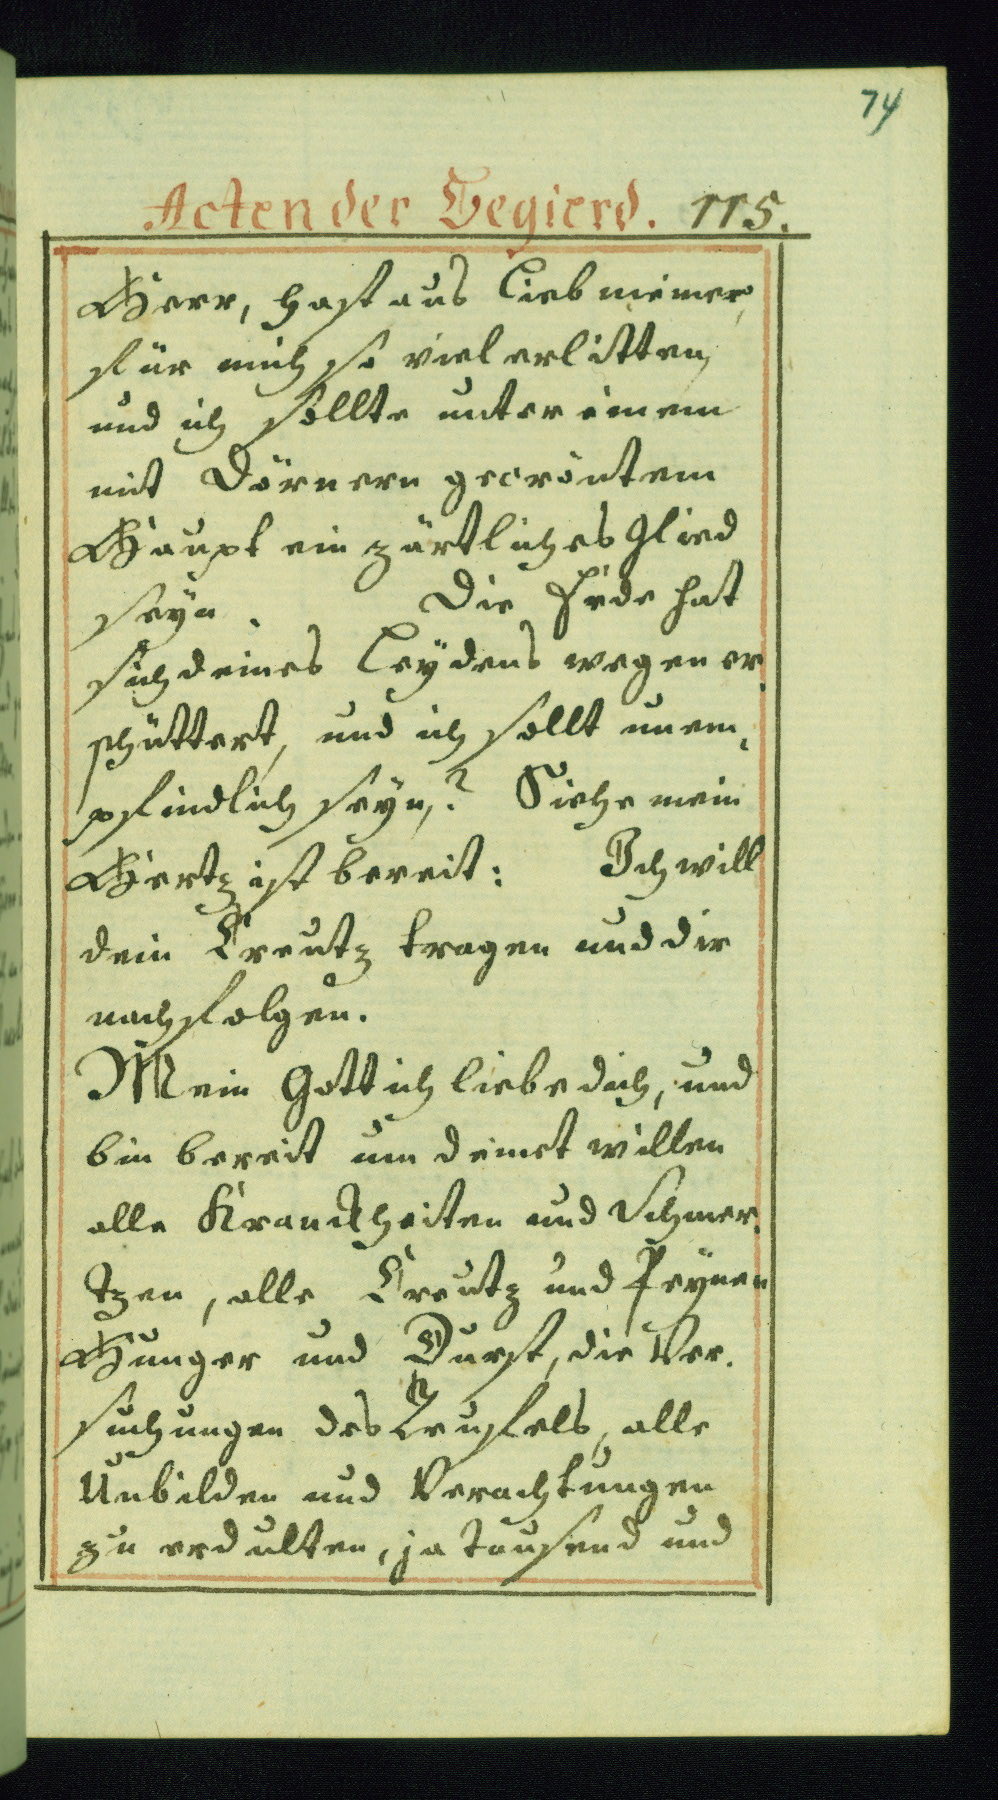 74
Acten der Begierd. 115.
Herr, hast aus Lieb meiner,
für mich so viel erlitten,
und ich sollte unter einem
mit Dörnern gecröntem
Haupt ein zärtliches Glied
seyn. Die Erde hat
sich deines Leydens wegen er,
schüttert, und ich sollt unem,
pfindlich seyn,? Siehe mein
Hertz ist bereit: Ich will
dein Creutz tragen und dir
nachfolgen.
Mein Gott ich liebe dich, und
bin bereit um deinet willen
alle Kranckheiten und Schmer,
tzen, alle Creutz und Peynen
Hunger und Durst, die Ver,
suchungen des Teufels, alle
Unbilden und Verachtungen
zu erdulten, ja tausend und